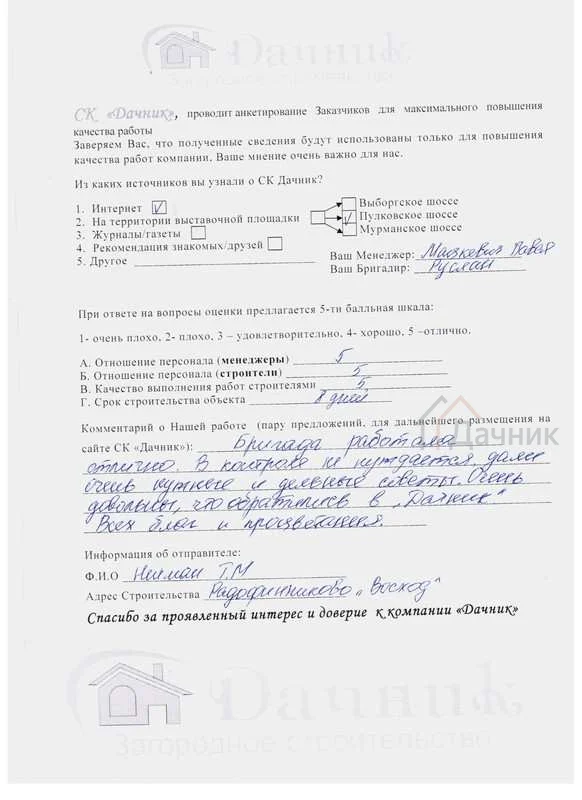 Дачник
Загородное строительство
СК «Дачник», проводит анкетирование Заказчиков для максимального повышения
качества работы
Заверяем Вас, что полученные сведения будут использованы только для повышения
качества работ компании, Ваше мнение очень важно для нас.
Из каких источников вы узнали о СК Дачник?
1. Интернет
2. На территории выставочной площадки
3. Журналы/газеты
4. Рекомендация знакомых/друзей
5. Другое
Выборгское шоссе
Пулковское шоссе
Мурманское шоссе
Ваш Менеджер: Павел
Ваш Бригадир: Руслан
При ответе на вопросы оценки предлагается 5-ти балльная шкала:
1- очень плохо, 2- плохо, 3 – удовлетворительно, 4- хорошо, 5 –отлично.
А. Отношение персонала (менеджеры) 5
Б. Отношение персонала (строители) 5
В. Качество выполнения работ строителями 5
Г. Срок строительства объекта 8 дней
Комментарий о Нашей работе (пару предложений, для дальнейшего размещения на
сайте СК «Дачник»): Бригада работала
Дачник
отлично. В контроле не нуждается, дали
очень нужные и дельные советы. Очень
довольны, что обратились в „Дачник"
Всех благ и процветания.
Информация об отправителе:
Ф.И.О Нейман Т.М
Адрес Строительства Радофинниково „Восход"
Спасибо за проявленный интерес и доверие к компании «Дачник»
Дачник
Загородное строительство